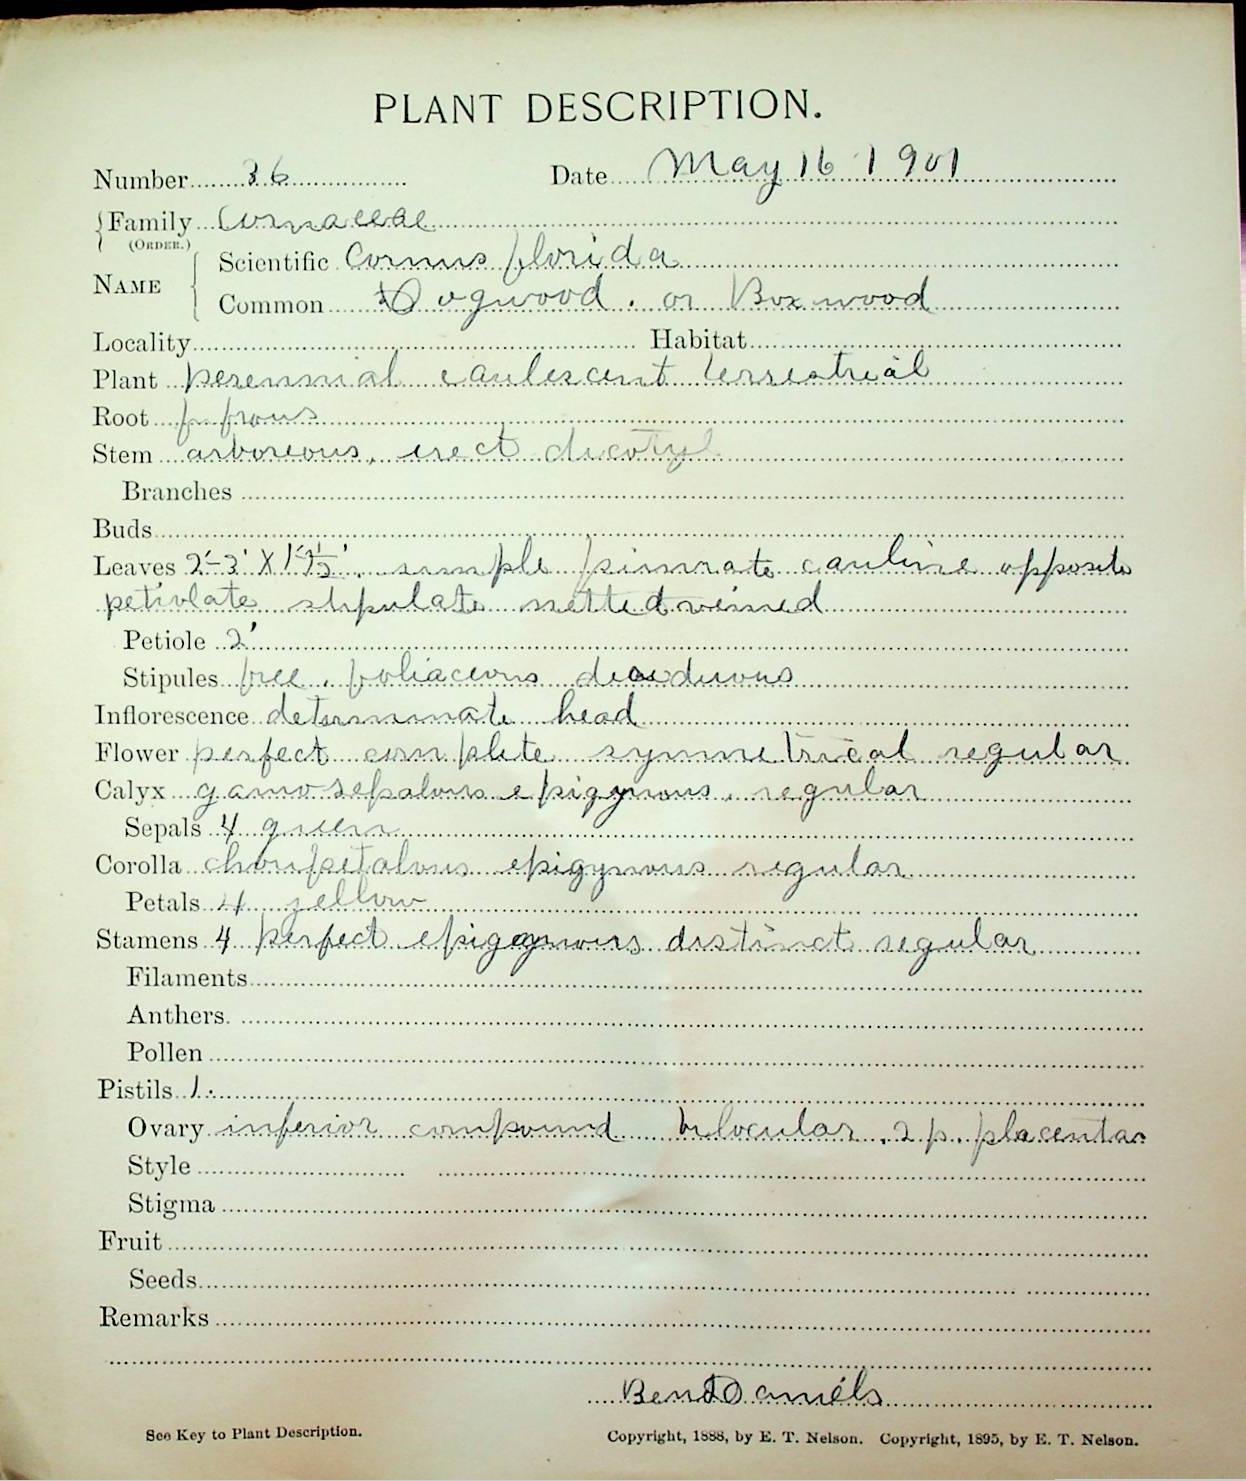 PLANT DESCRIPTION.
Number 36 Date May 16 1901
Family Cornaceae
(ORDER.)
Scientific Cornus florida
NAME
Common Dogwood. or Boxwood
Locality Habitat
Plant perennial caulescent terrestrial
Root
Stem arboreous, erect dicotyl
Branches
Buds
Leaves simple pinnate cauline opposite
petiolate stipulate netted veined
Petiole 2'
Stipules free, foliaceous
Inflorescence determinate head
Flower perfect complete symmetrical regular
Calyx gamosepalous epigynous, regular
Sepals 4 green
Corolla epigynous regular
Petals 4 yellow
Stamens 4 perfect epigynous distinct regular
Filaments
Anthers.
Pollen
Pistils 1.
Ovary inferior compound bilocular. 2 p. placentar
Style
Stigma
Fruit
Seeds
Remarks
Ben Daniels
See Key to Plant Description. Copyright, 1888, by E. T. Nelson. Copyright, 1895, by E. T. Nelson.